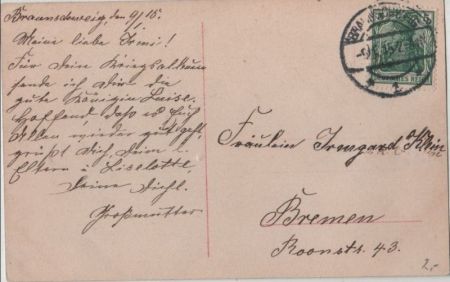 Braunschweig den 9/1 15.
Meine liebe Irmi!
Für Dein Kriegsalbum
sende ich Dir die
gute Königin Luise.
Hoffend daß es Euch
Allen wieder gut geht,
grüßt Dich, Deine
Eltern u Liselotte,
Deine Dichl.
Großmutter
Fräulein Irmgard Klein
Bremen
Roonstr. 43.
2,-